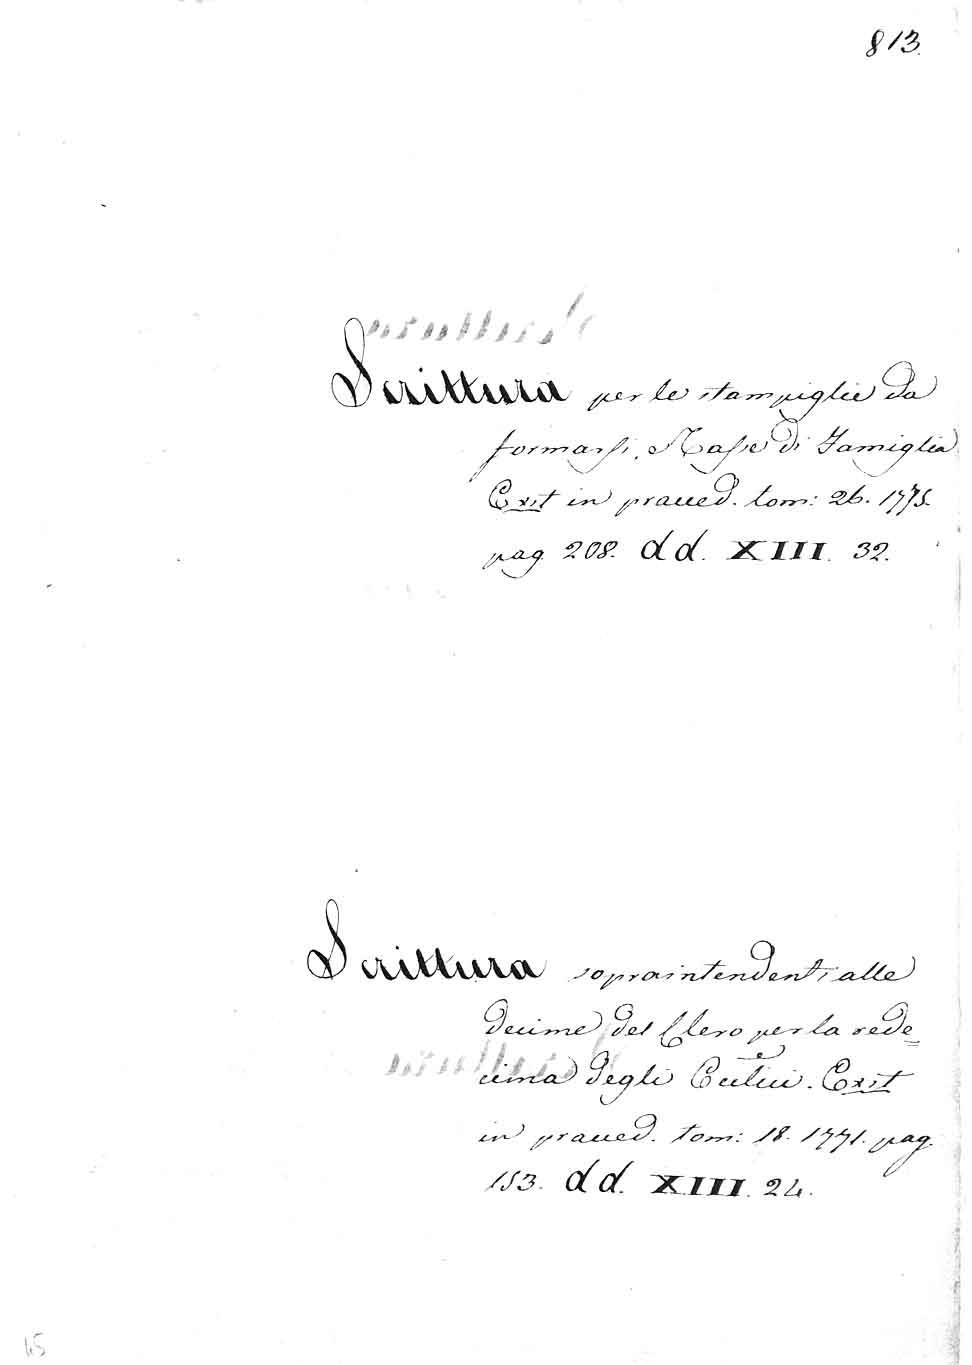 813.
Scrittura per le stampiglie da
formarsi, Nasse di Famiglia
Exit in praced. tom: 26. 1775.
pag 208. dd. XIII. 32.
Scrittura sopraintendenti alle
decime del Clero per la rede=
cima degli
Exit
in praced. tom: 18. 1771. pag.
153. dd. XIII. 24.
45